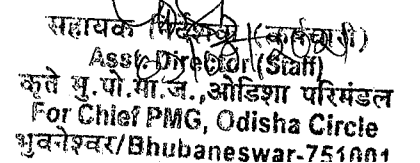 सहायक निदेशक (कर्मचारी)
Asst. Director (Staff)
कृते मु.पो.मा.ज.,ओडिशा परिमंडल
For Chief PMG, Odisha Circle
भुवनेश्वर/Bhubaneswar-751001